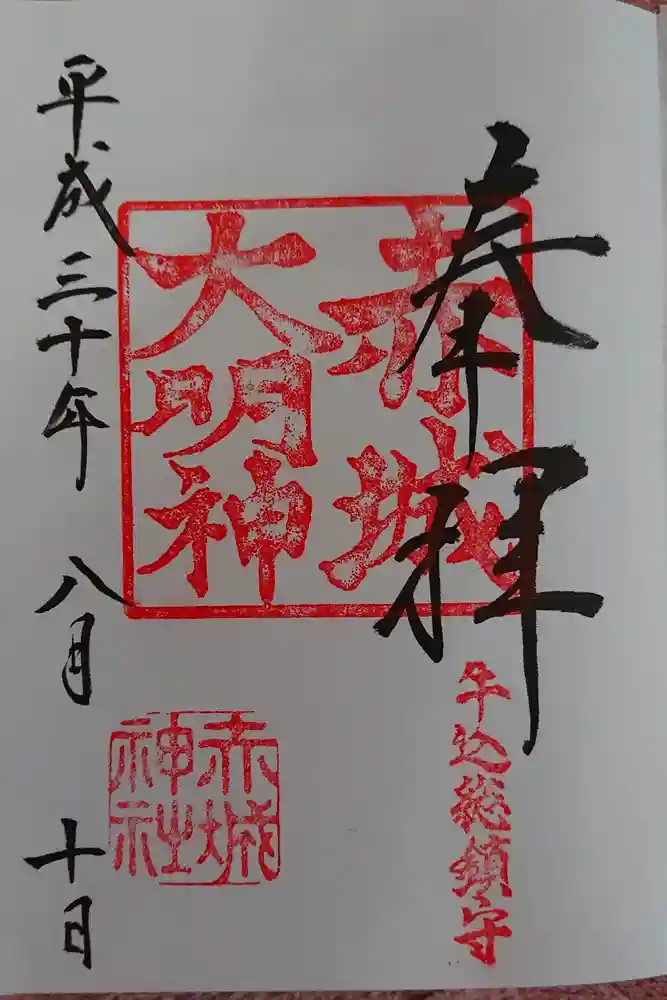 奉拝
牛込総鎮守
赤城
大明神
赤城
神社
平成三十年八月十日